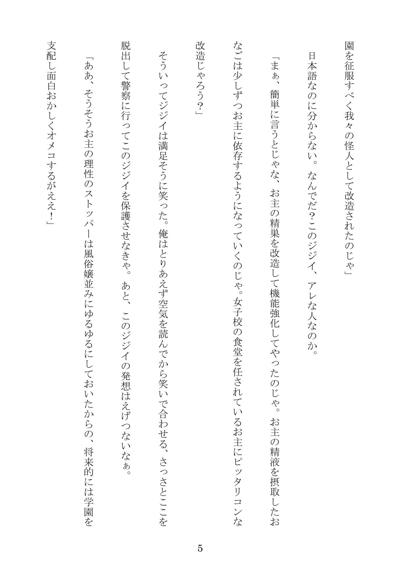 園を征服すべく我々の怪人として改造されたのじゃ」
日本語なのに分からない。なんでだ？このジジイ、アレな人なのか。
「まぁ、簡単に言うとじゃな、お主の精巣を改造して機能強化してやったのじゃ。お主の精液を摂取したお
なごは少しずつお主に依存するようになっていくのじゃ。女子校の食堂を任されているお主にピッタリコンな
改造じゃろう？」
そういってジジイは満足そうに笑った。俺はとりあえず空気を読んでから笑いで合わせる、さっさとここを
脱出して警察に行ってこのジジイを保護させなきゃ。あと、このジジイの発想はえげつないなぁ。
「ああ、そうそうお主の理性のストッパーは風俗嬢並みにゆるゆるにしておいたからの、将来的には学園を
支配し面白おかしくオメコするがええ！」
5